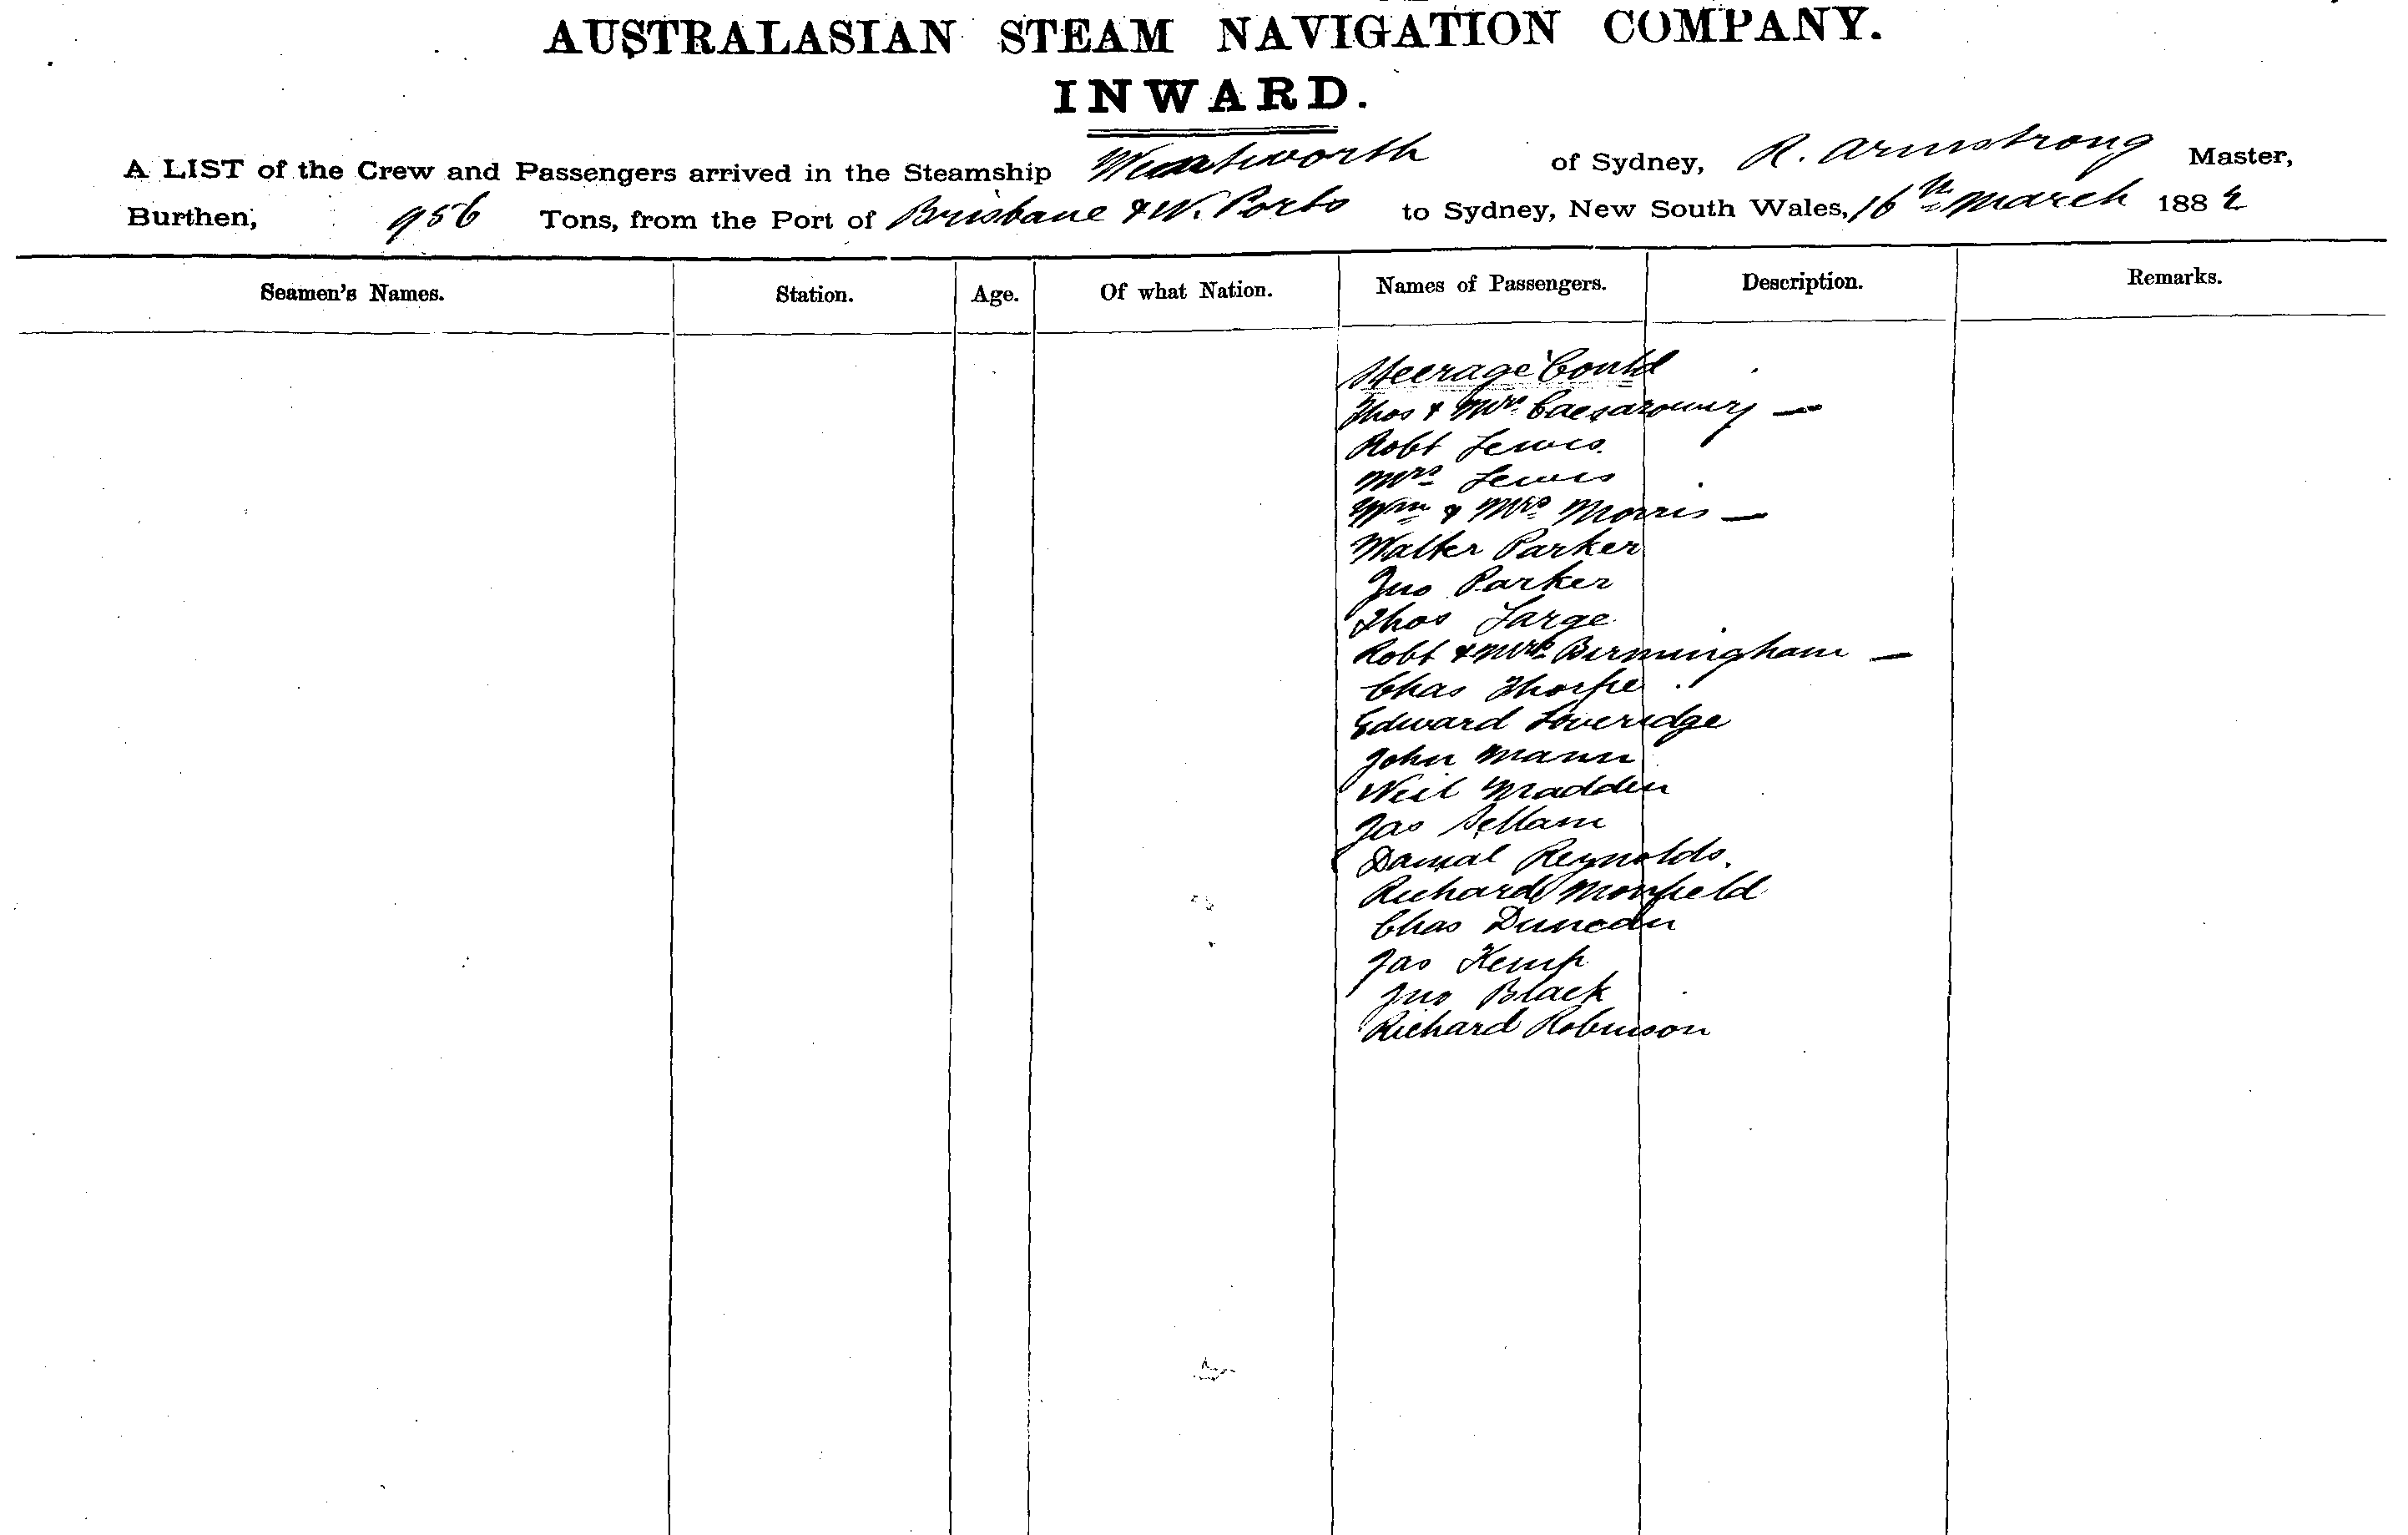 AUSTRALASIAN STEAM NAVIGATION COMPANY.
INWARD.
A LIST of the Crew and Passengers arrived in the Steamship Wentworth of Sydney, R. Armstrong Master,
Burthen, 956 Tons, from the Port of Brisbane & N. Ports to Sydney, New South Wales, 16th March 1882
Seamen's Names. Station. Age. Of what Nation. Names of Passengers. Description. Remarks.
Steerage Contd
Thos & Mrs —
Robt Lewis
Mrs Lewis
Wm & Mrs Morris —
Walter Parker
Jno Parker
Thos Large
Robt & Mrs Birmingham —
Chas Thorpe
Edward Loveridge
John Mann
Neil Madden
Jas Sellam
Danial Reynolds.
Richard
Chas Duncan
Jas Kemp
Jno Black
Richard Robinson